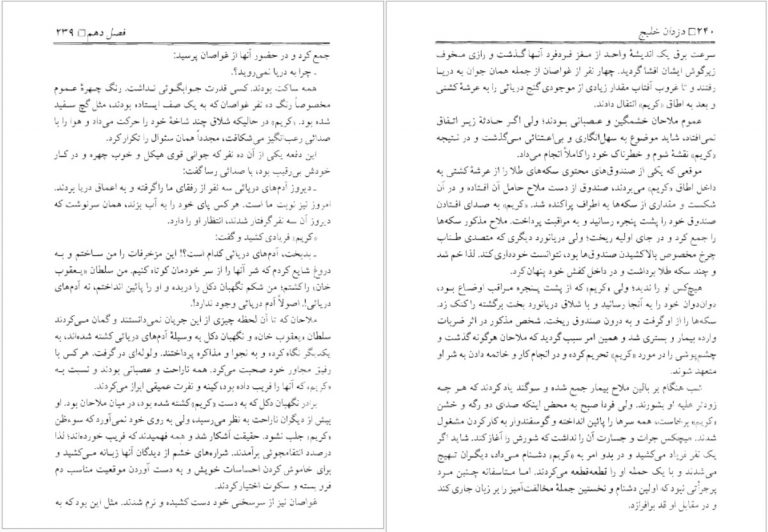 فصل دهم □ ۲۳۹
جمع کرد و در حضور آنها از غواصان پرسید:
ـ چرا به دریا نمی‌روید؟
همه ساکت بودند. کسی قدرت جوابگوئی نداشت. رنگ چهرهٔ عموم
مخصوصاً رنگ ده نفر غواصان که به یک صف ایستاده بودند، مثل گچ سفید
شده بود. «کریم» در حالیکه شلاق چند شاخهٔ خود را حرکت می‌داد و هوا را با
صدائی رعب‌انگیز می‌شکافت، مجدداً همان سئوال را تکرار کرد.
این دفعه یکی از آن ده نفر که جوانی قوی هیکل و خوب چهره و در کار
خودش بی‌رقیب بود، با صدائی رسا گفت:
ـ دیروز آدم‌های دریائی سه نفر از رفقای ما را گرفته و به اعماق دریا بردند.
امروز نیز نوبت ما است. هر کس پای خود را به آب بزند، همان سرنوشت که
دیروز آن سه نفر گرفتار شدند، انتظار او را دارد.
«کریم» فریادی کشید و گفت:
ـ بدبخت، آدم‌های دریائی کدام است؟! این مزخرفات را من ساختم و به
دروغ شایع کردم که شر آنها را از سر خودمان کوتاه کنیم. من سلطان «یعقوب
خان» را کشتم؛ من شکم نگهبان دکل را دریده و او را پائین انداختم، نه آدم‌های
دریائی!. اصولاً آدم دریائی وجود ندارد!.
ملاحان که تا آن لحظه چیزی از این جریان نمی‌دانستند و گمان می‌کردند
سلطان «یعقوب خان» و نگهبان دکل به وسیلهٔ آدم‌های دریائی کشته شده‌اند، به
یکدیگر نگاه کرده و به نجوا و مذاکره پرداختند. ولوله‌ای در گرفت. هر کس با
رفیق مجاور خود صحبت می‌کرد. همه ناراحت و عصبانی بودند و نسبت به
«کریم» که آنها را فریب داده بود، کینه و نفرت عمیقی ابراز می‌کردند.
برادر نگهبان دکل که به دست «کریم» کشته شده بود، در میان ملاحان بود. او
بیش از دیگران ناراحت به نظر می‌رسید، ولی به روی خود نمی‌آورد که سوءظن
«کریم» جلب نشود. حقیقت آشکار شد و همه فهمیدند که فریب خورده‌اند؛ لذا
درصدد انتقامجوئی برآمدند. شراره‌های خشم از دیدگان آنها زبانه می‌کشید و
برای خاموش کردن احساسات خویش و به دست آوردن موقعیت مناسب دم
فرو بسته و سکوت اختیار کردند.
غواصان نیز از سرسختی خود دست کشیده و نرم شدند. مثل این بود که به
۲۴۰ □ دزدان خلیج
سرعت برق یک اندیشهٔ واحد از مغز فردفرد آنها گذشت و رازی مخوف
زیر گوش ایشان افشا گردید. چهار نفر از غواصان از جمله همان جوان به دریا
رفتند و تا غروب آفتاب مقدار زیادی از موجودی گنج دریائی را به عرشهٔ کشتی
و بعد به اطاق «کریم» انتقال دادند.
عموم ملاحان خشمگین و عصبانی بودند؛ ولی اگر حادثهٔ زیر اتفاق
نمی‌افتاد، شاید موضوع به سهل‌انگاری و بی‌اعتنائی می‌گذشت و در نتیجه
«کریم» نقشهٔ شوم و خطرناک خود را کاملاً انجام می‌داد.
موقعی که یکی از صندوق‌های محتوی سکه‌های طلا را از عرشهٔ کشتی به
داخل اطاق «کریم» می‌بردند، صندوق از دست ملاح حامل آن افتاده و در آن
شکست و مقداری از سکه‌ها به اطراف پراکنده شد. «کریم» به صدای افتادن
صندوق خود را پشت پنجره رسانید و به مراقبت پرداخت. ملاح مذکور سکه‌ها
را جمع کرد و در جای اولیه ریخت؛ ولی دریانورد دیگری که متصدی طناب
چرخ مخصوص بالا کشیدن صندوق‌ها بود، نتوانست خودداری کند. لذا خم شد
و چند سکه طلا برداشت و در داخل کفش خود پنهان کرد.
هیچکس او را ندید؛ ولی «کریم» که از پشت پنجره مراقب اوضاع بود،
دوان‌دوان خود را به آنجا رسانید و با شلاق دریانورد بخت برگشته را کتک زد.
سکه‌ها را از او گرفت و به درون صندوق ریخت. شخص مذکور در اثر ضربات
وارده بیمار و بستری شد و همین امر سبب گردید که ملاحان هرگونه گذشت و
چشم‌پوشی را در مورد «کریم» تحریم کرده و در انجام کار و خاتمه دادن به شر او
متعهد شوند.
شب هنگام بر بالین ملاح بیمار جمع شده و سوگند یاد کردند که هر چه
زودتر علیه او بشورند. ولی فردا صبح به محض اینکه صدای دو رگه و خشن
«کریم» برخاست، همه سرها را پائین انداخته و گوسفندوار به کار کردن مشغول
شدند. هیچکس جرأت و جسارت آن را نداشت که شورش را آغاز کند. شاید اگر
یک نفر فریاد می‌کشید و در بدو امر به «کریم» دشنام می‌داد، دیگران تهییج
می‌شدند و با یک حمله او را قطعه‌قطعه می‌کردند. اما متاسفانه چنین مرد
پرجرأتی نبود که اولین دشنام و نخستین جملهٔ مخالفت‌آمیز را بر زبان جاری کند
و در مقابل او قد برافرازد.